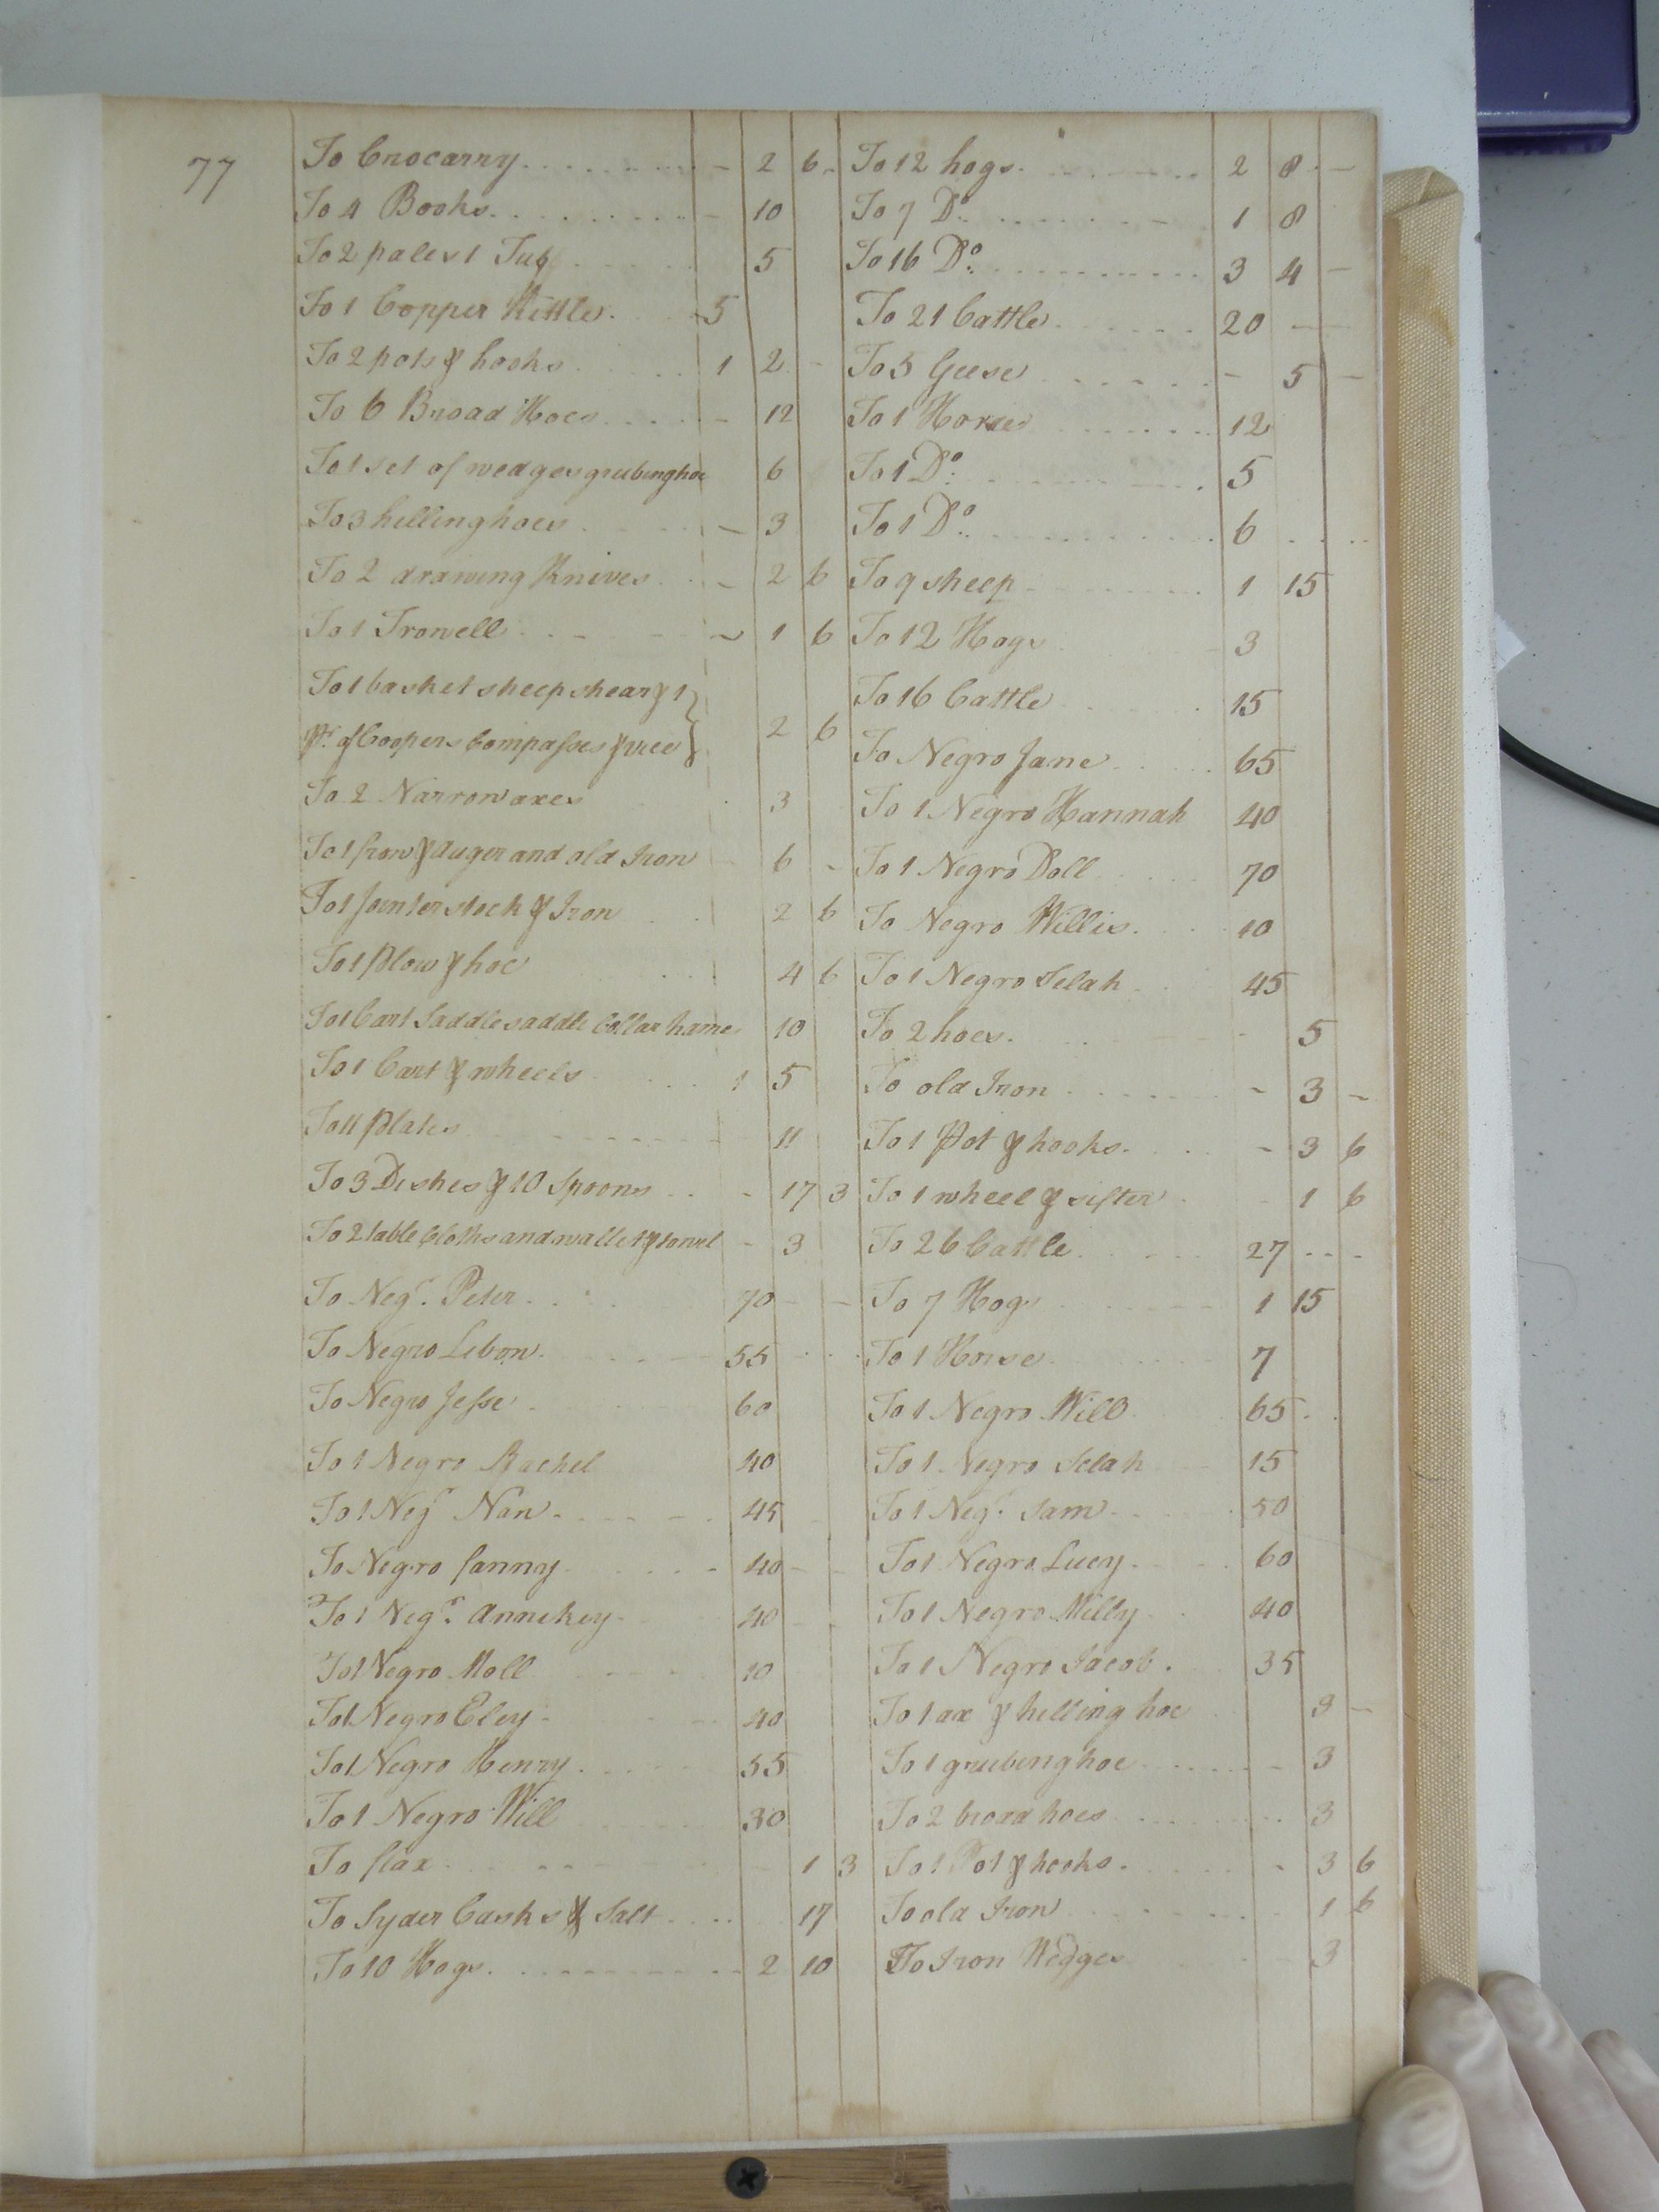 77
To Crocarry - 2 6
To 4 Books - 10
To 2 pales 1 Tub 5
To 1 Copper Kittle 5
To 2 pots & hooks 1 2 -
To 6 Broad Hoes - 12
To 1 set of wedges grubinghoe 6
To 3 hellinghoes - 3
To 2 drawing Knives - 2 6
To 1 Trowell - 1 6
To 1 basket sheep shear & 1
Pr. of Coopers Compasses & vice } 2 6
To 2 Narrow axes 3
To 1 frow & auger and old Iron - 6 -
To 1 Jointer stock & Iron 2 6
To 1 Plow & hoe 4 6
To 1 Cart Saddle saddle Collar hame 10
To 1 Cart & wheels 1 5
To 11 Plates 11
To 3 Dishes & 10 Spoons - 17 3
To 2 table Cloths and wallet & towel - 3
To Negr. Peter 70 - -
To Negro Lebon 55
To Negro Jesse 60
To 1 Negro Rachel 40
To 1 Negr Nan 45
To Negro fanny 40 - -
To 1 Negr. Annekey 40
To 1 Negro Moll 10
To 1 Negro Eley 40
To 1 Negro Henry 55
To 1 Negro Will 30
To flax 1 3
To Syder Casks & Salt 17
To 10 Hogs 2 10
To 12 hogs 2 8 -
To 7 Do. 1 8
To 16 Do. 3 4 -
To 21 Cattle 20 - -
To 5 Geese - 5 -
To 1 Horse 12
To 1 Do. 5
To 1 Do. 6
To 9 sheep 1 15
To 12 Hogs 3
To 16 Cattle 15
To Negro Jane 65
To 1 Negro Hannah 40
To 1 Negro Doll 70
To Negro Willis 10
To 1 Negro Selah 45
To 2 hoes - 5
To old Iron - 3 -
To 1 Pot & hooks - 3 6
To 1 wheel & sifter - 1 6
To 26 Cattle 27
To 7 Hogs 1 15
To 1 Horse 7
To 1 Negro Will 65
To 1 Negro Selah 15
To 1 Negr. Sam 50
To 1 Negro Lucy 60
To 1 Negro Milly 40
To 1 Negro Jacob 35
To 1 ax & helling hoe 3 -
To 1 grubinghoe - 3
To 2 broad hoes 3
To 1 Pot & hooks - 3 6
To old Iron 1 6
To Iron Wedges - 3